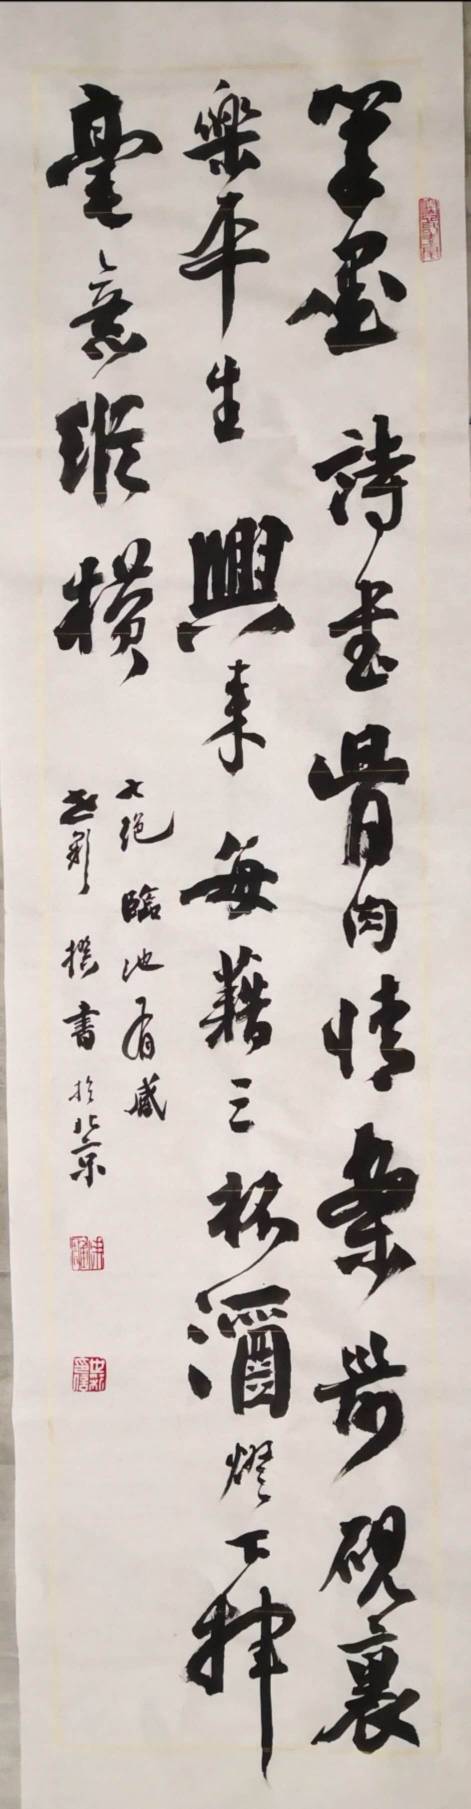 筆墨詩書骨肉情案前硯裏
樂平生興來每藉三杯酒燈下揮
毫意縱橫
七绝臨池有感
撰書於北京